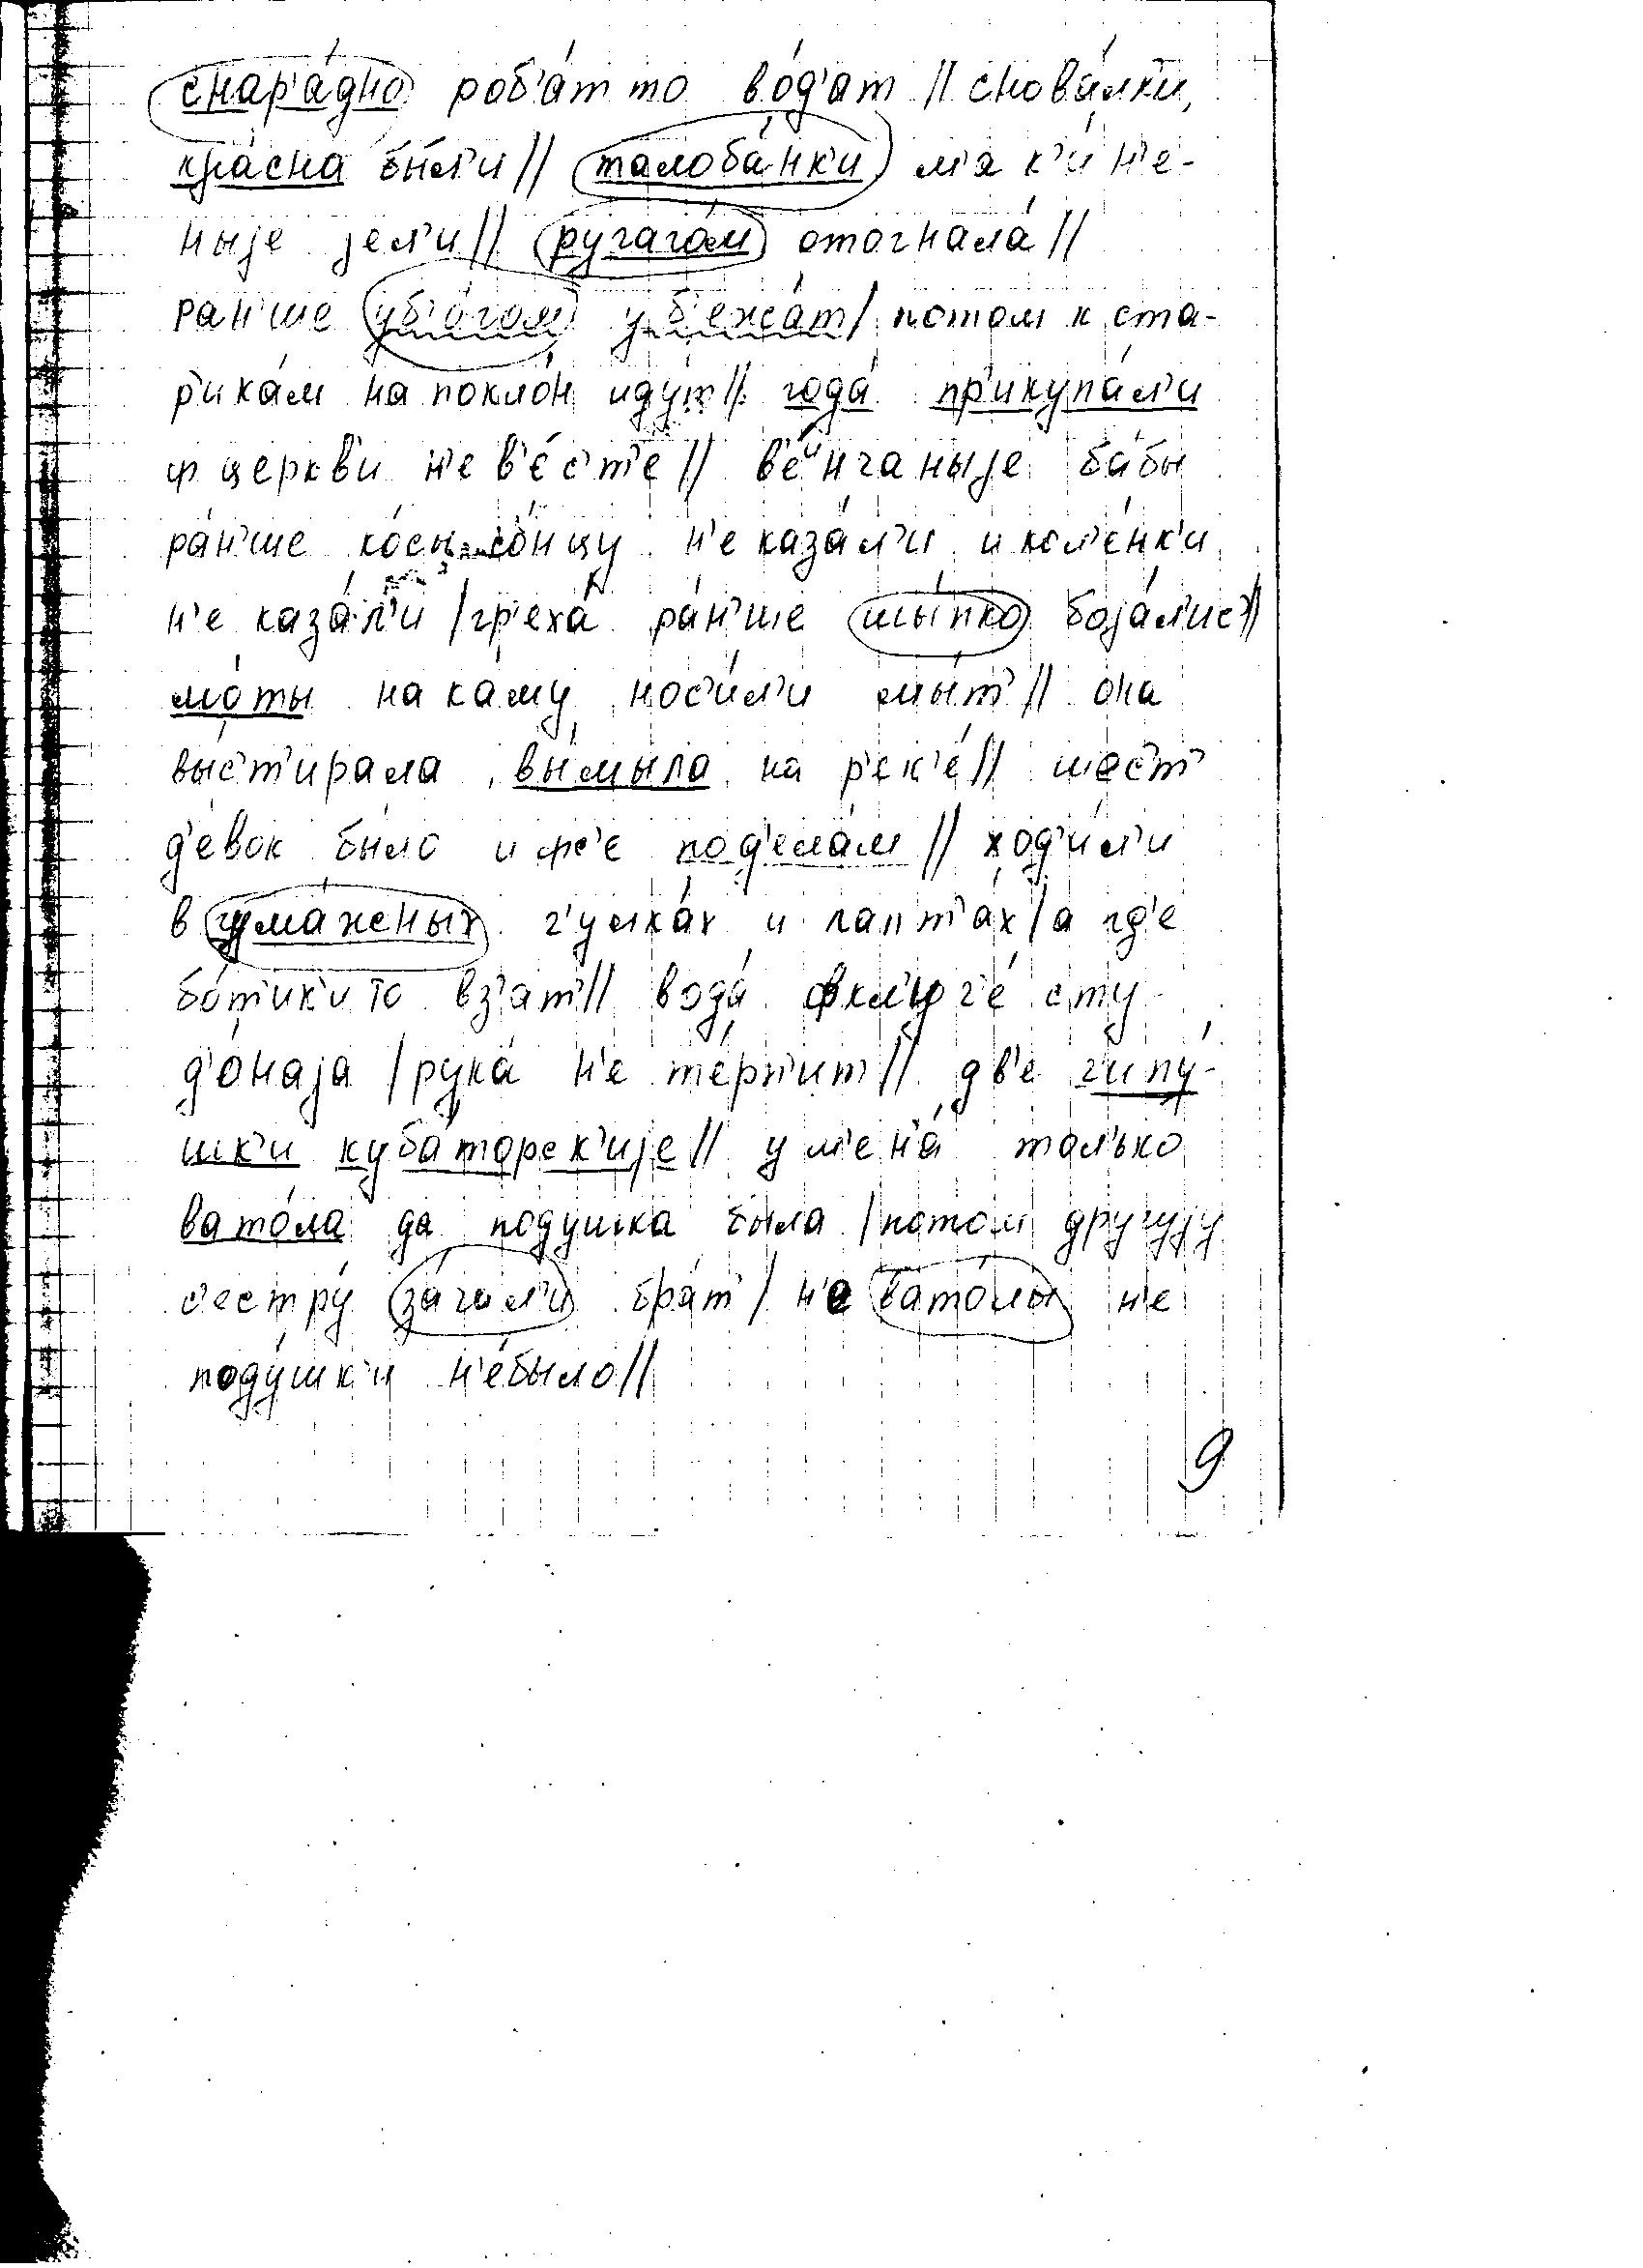 снар'а́дно роб'а́т то во́д'ат // снова́лк'и,
кра́сна бы́л'и // талоба́нк'и м'як'и́н'е-
ныjе jел'и // ругаго́м отогнала́ //
ран'ше уб'о́гом уб'ежа́т / потом к ста-
р'ика́м на покло́н иду́т // года́ пр'икупа́л'и
ф церкв'и н'ев'е́ст'е // в'е́нчаныjе ба́бы
ра́н'ше ко́сы со́нцу н'е каза́л'и и кол'е́нк'и
н'е каза́л'и / гр'еха́ ра́н'ше шы́пко боjа́л'ис' //
мо́ты на ка́му нос'и́л'и мы́т' // она
вы́ст'ирала, вы́мыла на р'ек'е́ // шес'т'
д'е́вок бы́ло и фс'е под'ела́м // ход'и́л'и
в гума́жных ч'улка́х и лапт'а́х / а гд'е
бо́т'ик'и то вз'ат' // вода́ фкл'уч'е́ сту-
д'о́наjа / рука́ н'е те́рп'ит // дв'е г'ипу́-
шк'и куба́торск'иjе // у м'ен'а́ тол'ько
вато́ла да подушка была / потом другуjу
с'естру́ за́чал'и брат' / н'е вато́лы н'е
поду́шк'и н'е́было //
9